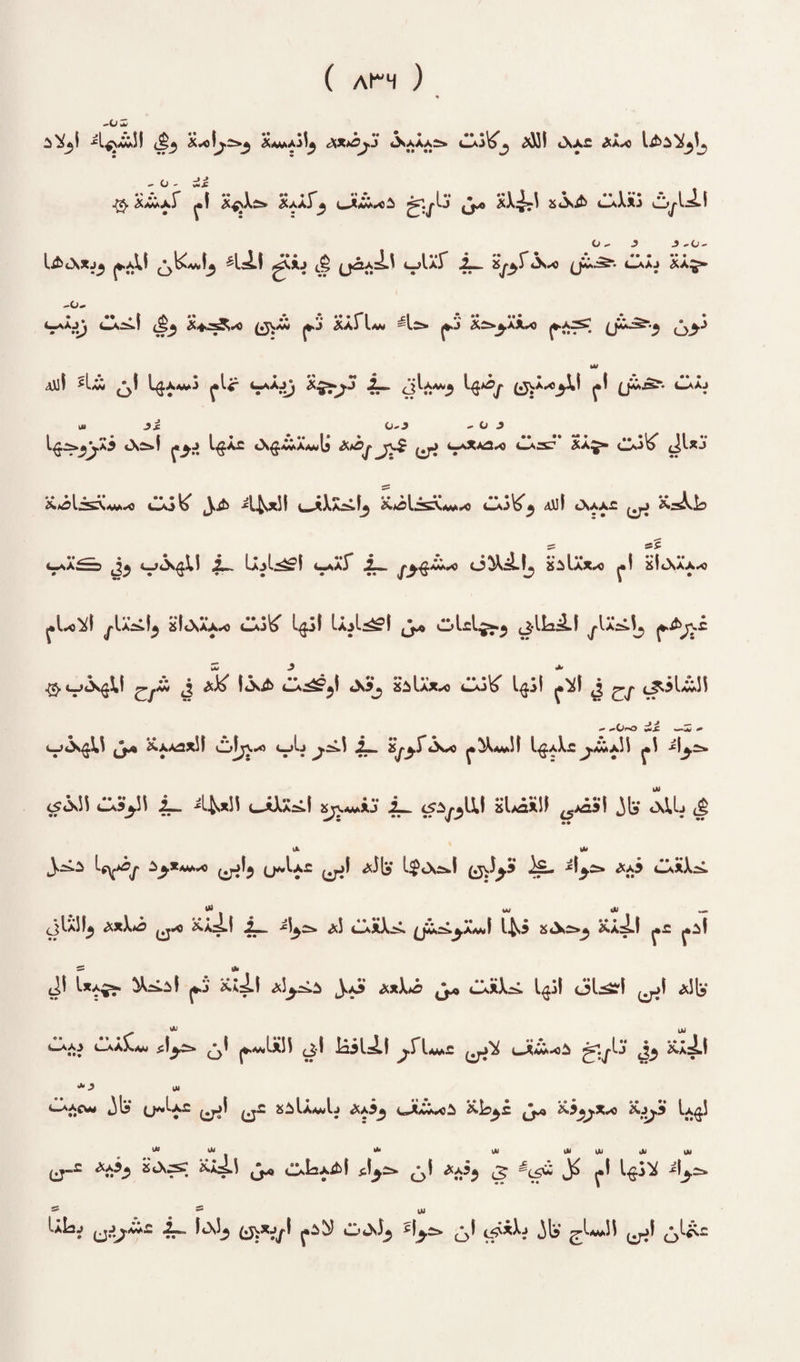 ( ٨٣٦ )
واولادها منه عبد الله وكانت حينيذ ترضعه وانيسة وحرامة وهي الشيماء اولاد
الحارث نقلت هذه الجملة من تاريخ دمشق وكنية حليمة ام كبشة ۞
حمنة بنت جحش مذكورة في كتاب الحيض هي بفتح الحاء واسكان الميم وبعدها
نون وجحش بجيم مفتوحة ثم حاء ساكنة ثم شين معجمة وهي اخت زينب
بنت جحش ام المومنين رضها وسياق في ترجمة زينب تمام نسبها ان شاء الله
تعالي كانت حمنة تحت مصعب بن عمير رضه فاستشهد عنها يوم احد فتزوجها
طلحة بن عبيد الله وكانت مستحاضة واختلف العلماء هل كانت مستحاضة
مبتداة ام معتادة والخلاف مشهور في كتب اصحابنا في المهذب وفي كتب
غيرهم واختار الخطابي وجماعات من اصحابنا انها كانت مبتداة واختار الامام
الشافعي رح في الام انها كانت معتادة وقد اوضحت هذا كله في شرح المهذب ۞
حواء ام البشر عليها السلام مذكورة في اخر باب ميراث العصبة من المهذب
هي بالمد قال اقضي القضاة الماوردي في تفسيره اختلف العلماء في الوقت الذي
خلقت فيه حواء علي قولين احدها قاله ابن عباس وابن مسعود رضهما دخل
آدم عم الجنة وحده فلما استوحش خلقت له حواء في الجنة من ضلعه والثاني
قاله ابن اسحاق انها خلقت من ضلعه قبل دخوله الجنة ثم ادخلا جميعا الي
الجنة وفي تاريخ دمشق لابن عساكر الحافظ ابي القاسم ان حواء سكنت بيت
لهيا قرية معروفة من غوطة دمشق وفيه باسناده عن ابن عباس قال سميت
حواء لانها ام كل شيء حي وفيه ان حواء اهبطت من الجنة بجدة وفيه عن
عثمان ابن الساج قال بلغني ان حواء ولدت لادم اربعين ولدا في عشرين بطنا